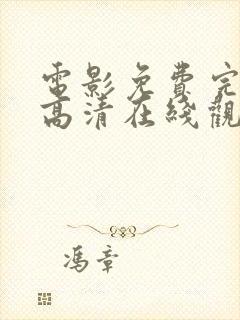 電影免費完
高清在綫觀
馮章